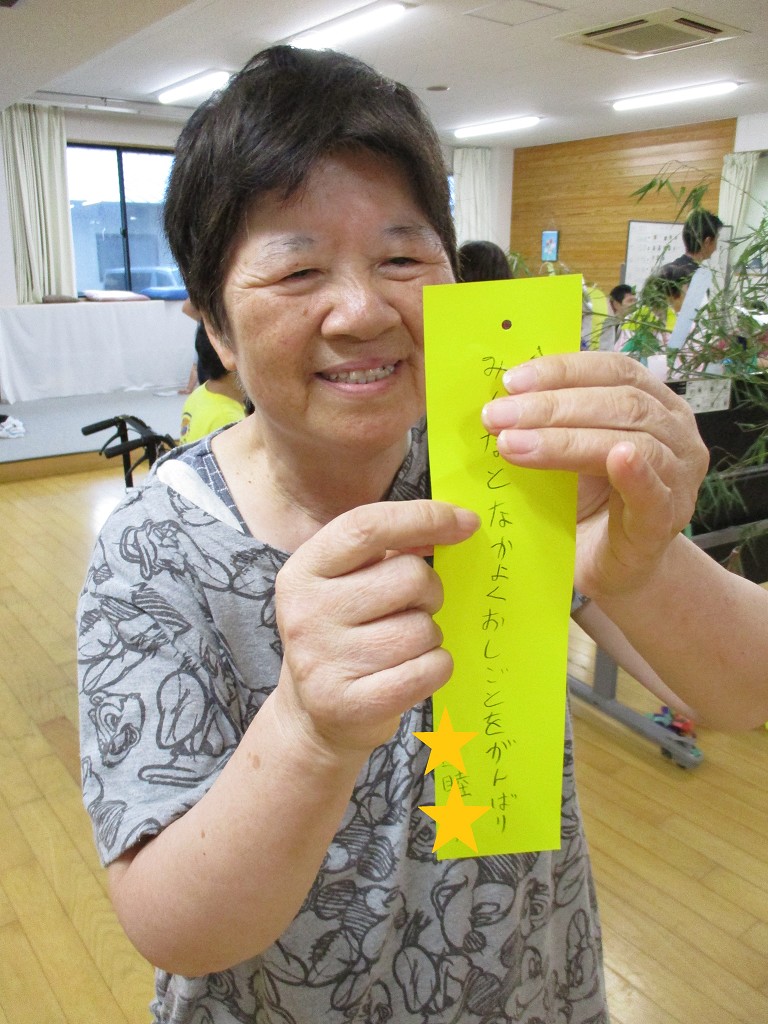 みんなとなかよくおしごとをがんばり
睦